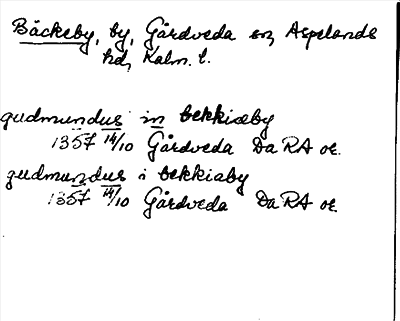 Bäckeby, by, Gårdveda sn, Aspelands
hd, Kalm. l.
gudmundus in bekkiæby
1357 14/10 Gårdveda DaRA or.
gudmundus i bekkiaby
1357 14/10 Gårdveda DaRA or.